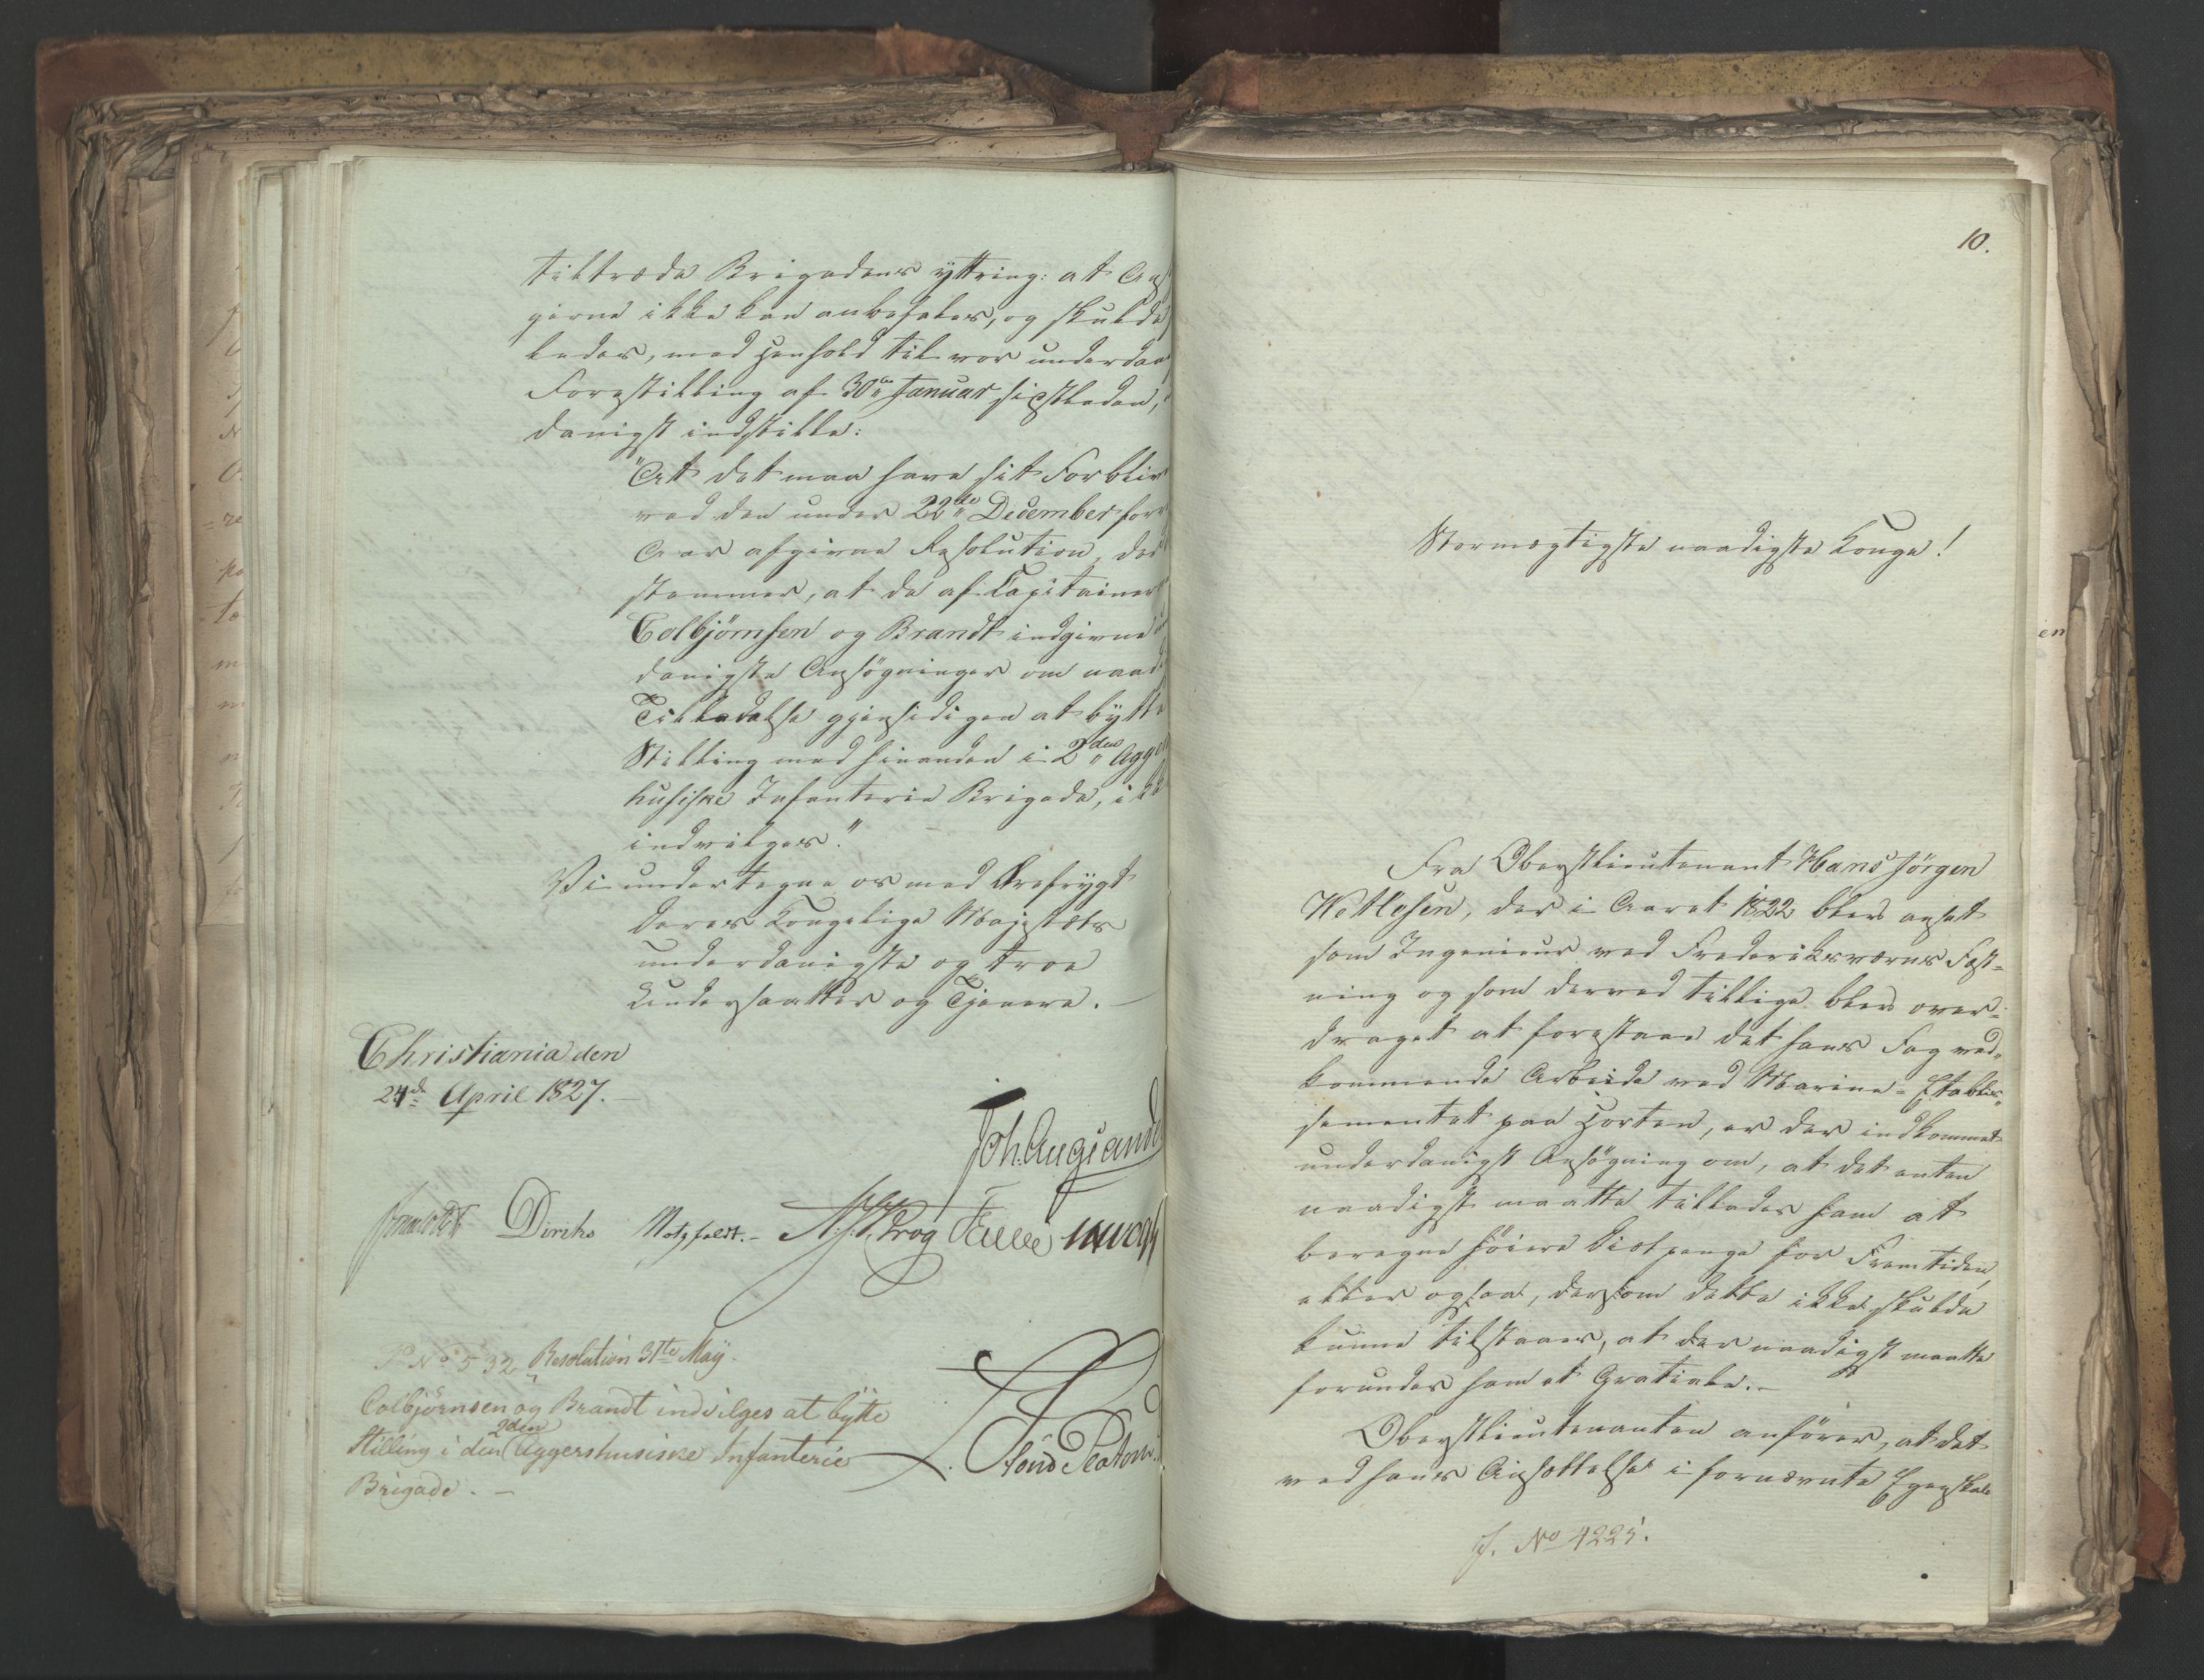 tiltræde Brigadens yttring: at
gerne ikke kan anbefales, og skulde
ledes, med Henhold til vor underdan
Forestilling af 30te Januar sidstleden,
danigst indstille:
"At det maa have sit Forbliv
ved den under 22de December forr
Aar afgivne Resolution, der
stemmer, at de af Capitainer
Colbjörnsen og Brandt indgivne
danigste Ansögninger om naad
Tilladelse gjensidigen at bytte
Stilling med hinanden i 2den Agger
husiske Infanterie Brigade, ikke
indvilges."
Vi undertegne os med Ærefrygt
Deres Kongelige Majestæts
underdanigste og troe
Undersaatter og Tjenere. —
Christiania den
24de April 1827. —
Joh. Aug. Sandels
Sommerhielm Diriks Motzfeldt. - Krog Fasting
P No 532, Resolution 31te May.
Colbjörnsen og Brandt indvilges at bytte
Stilling i den 2den Aggershusiske Infanterie
Brigade. —
10.
Stormægtigste naadigste Konge!
Fra Oberstlieutenant Hans Jörgen
Wetlesen, der i Aaret 1822 blev ansat
som Ingenieur ved Frederiksværns Fæst-
ning og som derved tillige blev over-
draget at forestaae det hans Fag ved-
kommende Arbeide ved Marine-Etablis-
sementet paa Horten, er der indkommet
underdanigst Ansögning om, at det enten
naadigst maatte tillades ham at
beregne höiere Diætpenge for Fremtiden,
eller ogsaa, dersom dette ikke skulde
kunne tilstaaes, at der naadigst maatte
forundes ham et Gratiale. -
Oberstlieutenanten anförer, at det
ved hans Ansættelse i fornævnte Egenskab
J. No 4225.